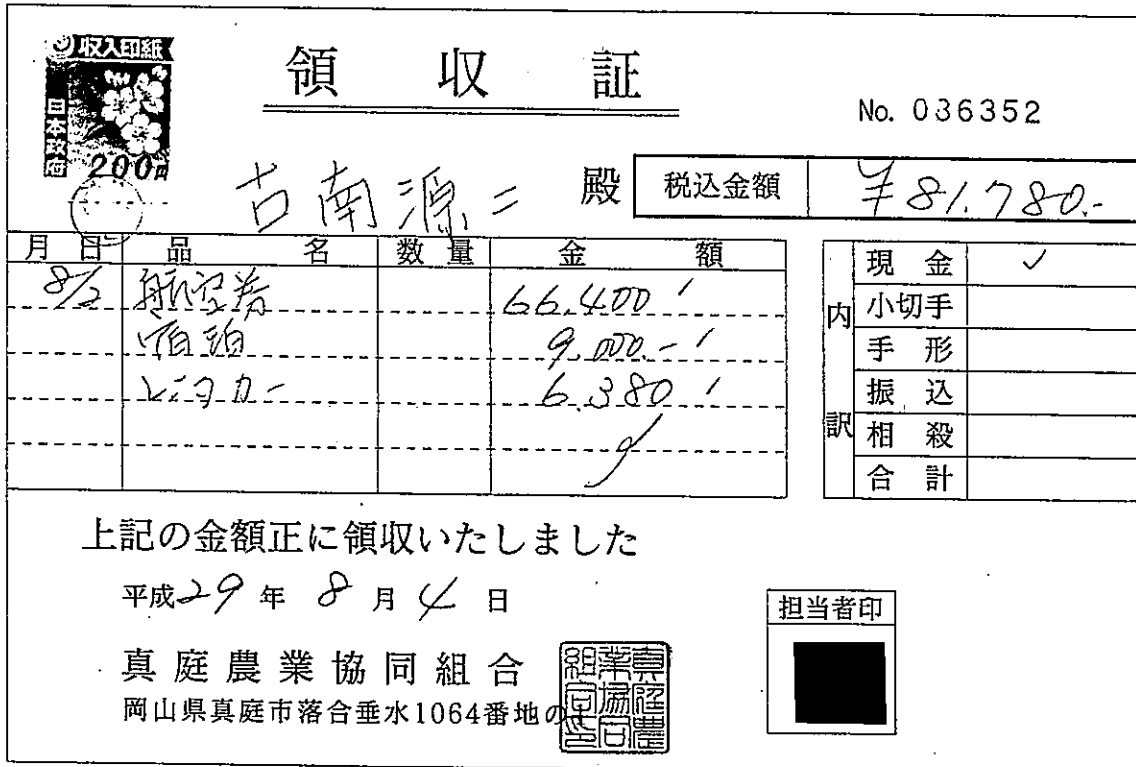 収入印紙
日本政府
200円
領収証
No. 036352
古南源二 殿
税込金額 ¥81,780.-
月日 品名 数量 金額
8/2 航空券 66,400
宿泊 9,000.-
レンタカー 6,380
内訳
現金 ✓
小切手
手形
振込
相殺
合計
上記の金額正に領収いたしました
平成29年8月4日
担当者印
真庭農業協同組合
岡山県真庭市落合垂水1064番地の
真庭農業協同組合之印